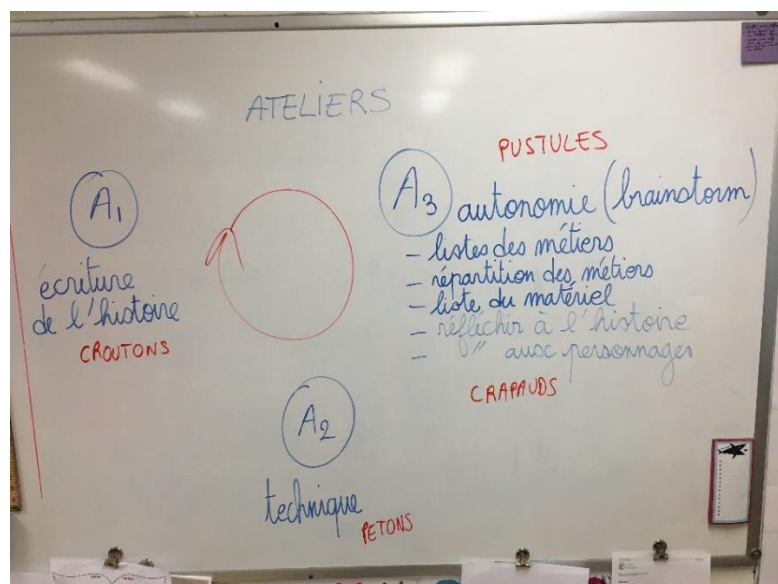 ATELIERS
PUSTULES
A1
écriture
de l'histoire
CROUTONS
A3 autonomie (brainstorm)
- listes des métiers
- répartition des métiers
- liste du matériel
- réfléchir à l'histoire
- " aux personnages
CRAPAUDS
A2
technique
PETONS